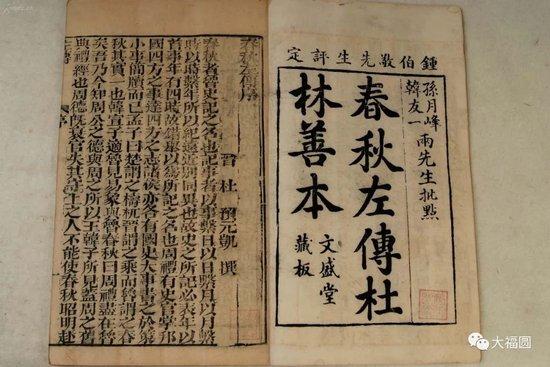 鍾伯敬先生評定
孫月峰
韓友一
兩先生批點
春秋左傳杜
林善本
文盛堂
藏板
春秋左傳序
晉 杜 預元凱 撰
春秋者魯史記之名也記事者以事繫日以日繫月以月繫
時以時繫年所以紀遠近別同異也故史之所記必表年以
首事年有四時故錯舉以爲所記之名也周禮有史官掌邦
國四方之事達四方之志諸侯亦各有國史大事書之於策
小事簡牘而已孟子曰楚謂之檮杌晉謂之乘而魯謂之春
秋其實一也韓宣子適魯見易象與魯春秋曰周禮盡在魯
矣吾乃今知周公之德與周之所以王韓子所見蓋周之舊
典禮經也周德既衰官失其守上之人不能使春秋昭明赴
大福圆